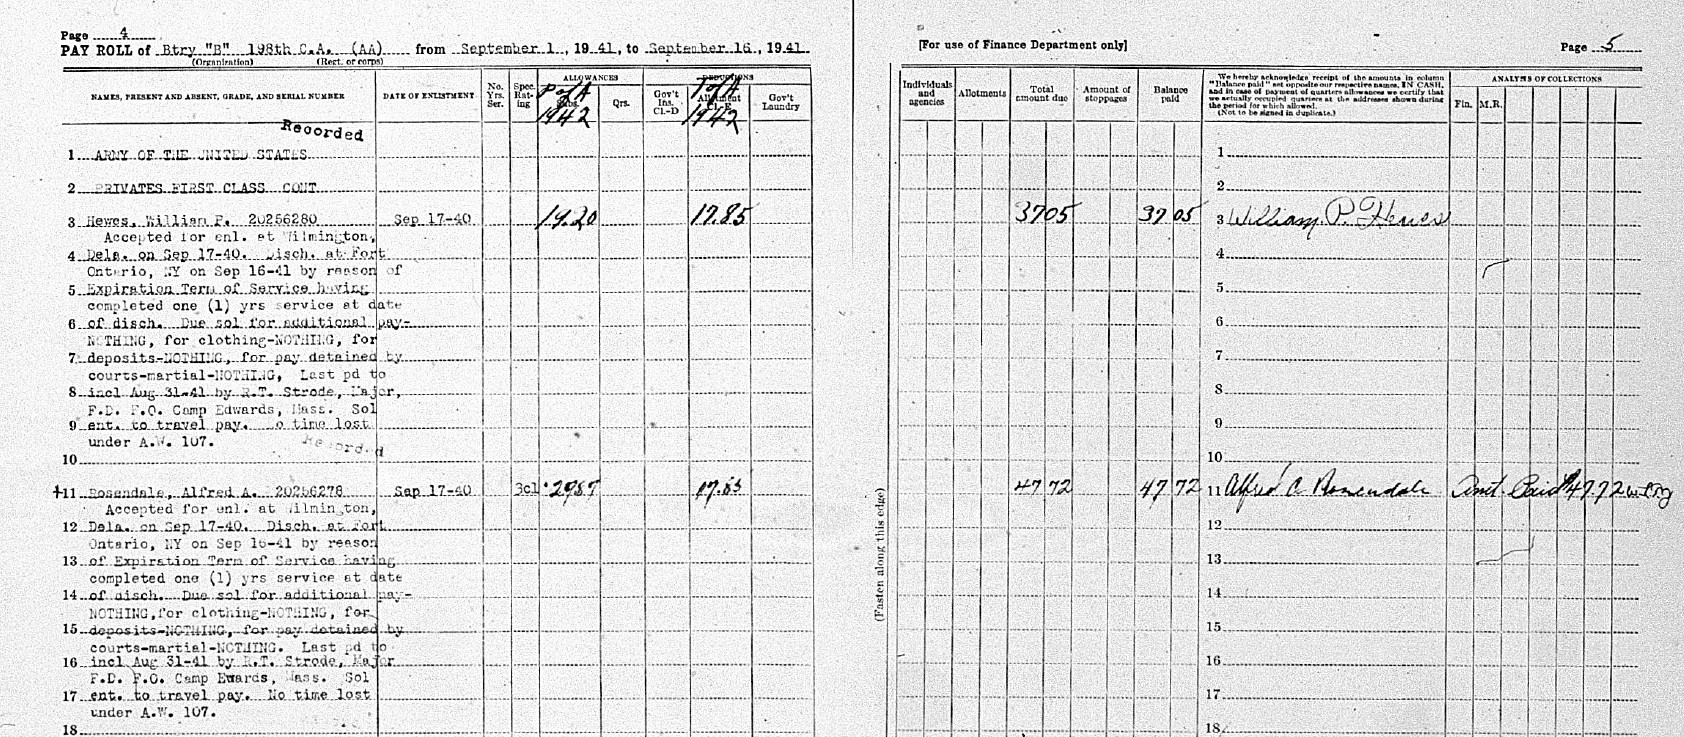 Page 4
PAY ROLL of Btry "B" 198th C.A. (AA) from September 1, 1941, to September 16, 1941
(Organization) (Regt. or corps)
NAMES, PRESENT AND ABSENT, GRADE, AND SERIAL NUMBER
DATE OF ENLISTMENT
No. Yrs. Ser.
Spec. Rating
ALLOWANCES
P of A
Subs.
1942
Qrs.
DEDUCTIONS
Gov't Ins. Cl.-D
T of A
Allotment Cl.-E
1942
Gov't Laundry
Recorded
1 ARMY OF THE UNITED STATES
2 PRIVATES FIRST CLASS CONT
3 Hewes, William P. 20256280 Sep 17-40 19.20 17.85
Accepted for enl. at Wilmington,
4 Dela. on Sep 17-40. Disch. at Fort
Ontario, NY on Sep 16-41 by reason of
5 Expiration Term of Service having
completed one (1) yrs service at date
6 of disch. Due sol for additional pay-
NOTHING, for clothing-NOTHING, for
7 deposits-NOTHING, for pay detained by
courts-martial-NOTHING, Last pd to
8 incl Aug 31-41 by R.T. Strode, Major,
F.D. F.O. Camp Edwards, Mass. Sol
9 ent. to travel pay. No time lost
under A.W. 107.
Recorded
10
11 Rosendale, Alfred A. 20256278 Sep 17-40 3cl 29.87 17.85
Accepted for enl. at Wilmington,
12 Dela. on Sep 17-40. Disch. at Fort
Ontario, NY on Sep 16-41 by reason
13 of Expiration Term of Service having
completed one (1) yrs service at date
14 of disch. Due sol for additional pay-
NOTHING, for clothing-NOTHING, for
15 deposits-NOTHING, for pay detained by
courts-martial-NOTHING. Last pd to
16 incl Aug 31-41 by R.T. Strode, Major
F.D. F.O. Camp Edwards, Mass. Sol
17 ent. to travel pay. No time lost
under A.W. 107.
18
[For use of Finance Department only]
Page 5
Individuals and agencies
Allotments
Total amount due
Amount of stoppages
Balance paid
We hereby acknowledge receipt of the amounts in column
"Balance paid" set opposite our respective names, IN CASH,
and in case of payment of quarters allowances we certify that
we actually occupied quarters at the addresses shown during
the period for which allowed.
(Not to be signed in duplicate.)
ANALYSIS OF COLLECTIONS
Fin. M.R.
1
2
37 05 37 05 3 William P. Hewes
4
5
6
7
8
9
10
47 72 47 72 11 Alfred A Rosendale Amt. Paid $47.72
12
13
14
15
16
17
18
(Fasten along this edge)